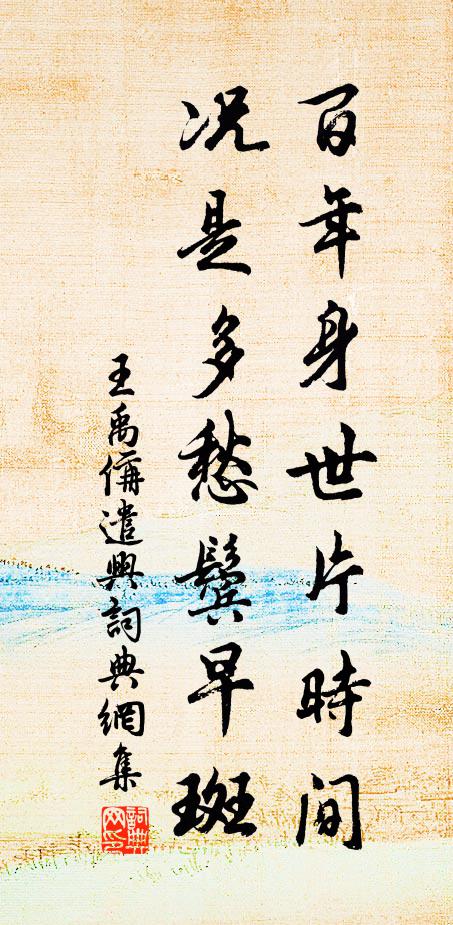 百年身世片時间
况是多愁鬓早斑
王禹偁遣興詞典網集
詞典网印